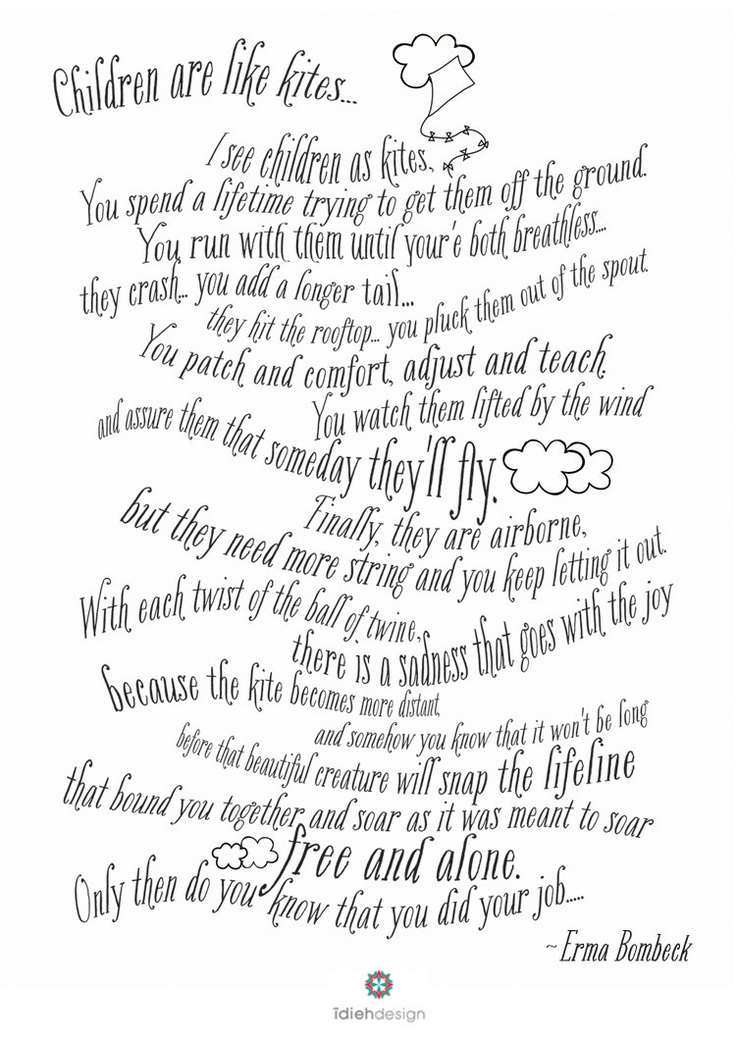 Children are like kites...
I see children as kites,
You spend a lifetime trying to get them off the ground.
You run with them until your'e both breathless...
they crash... you add a longer tail...
they hit the rooftop... you pluck them out of the spout.
You patch and comfort, adjust and teach.
You watch them lifted by the wind
and assure them that someday they'll fly.
Finally, they are airborne,
but they need more string and you keep letting it out.
With each twist of the ball of twine,
there is a sadness that goes with the joy
because the kite becomes more distant,
and somehow you know that it won't be long
before that beautiful creature will snap the lifeline
that bound you together and soar as it was meant to soar
free and alone.
Only then do you know that you did your job.....
~ Erma Bombeck
idiehdesign